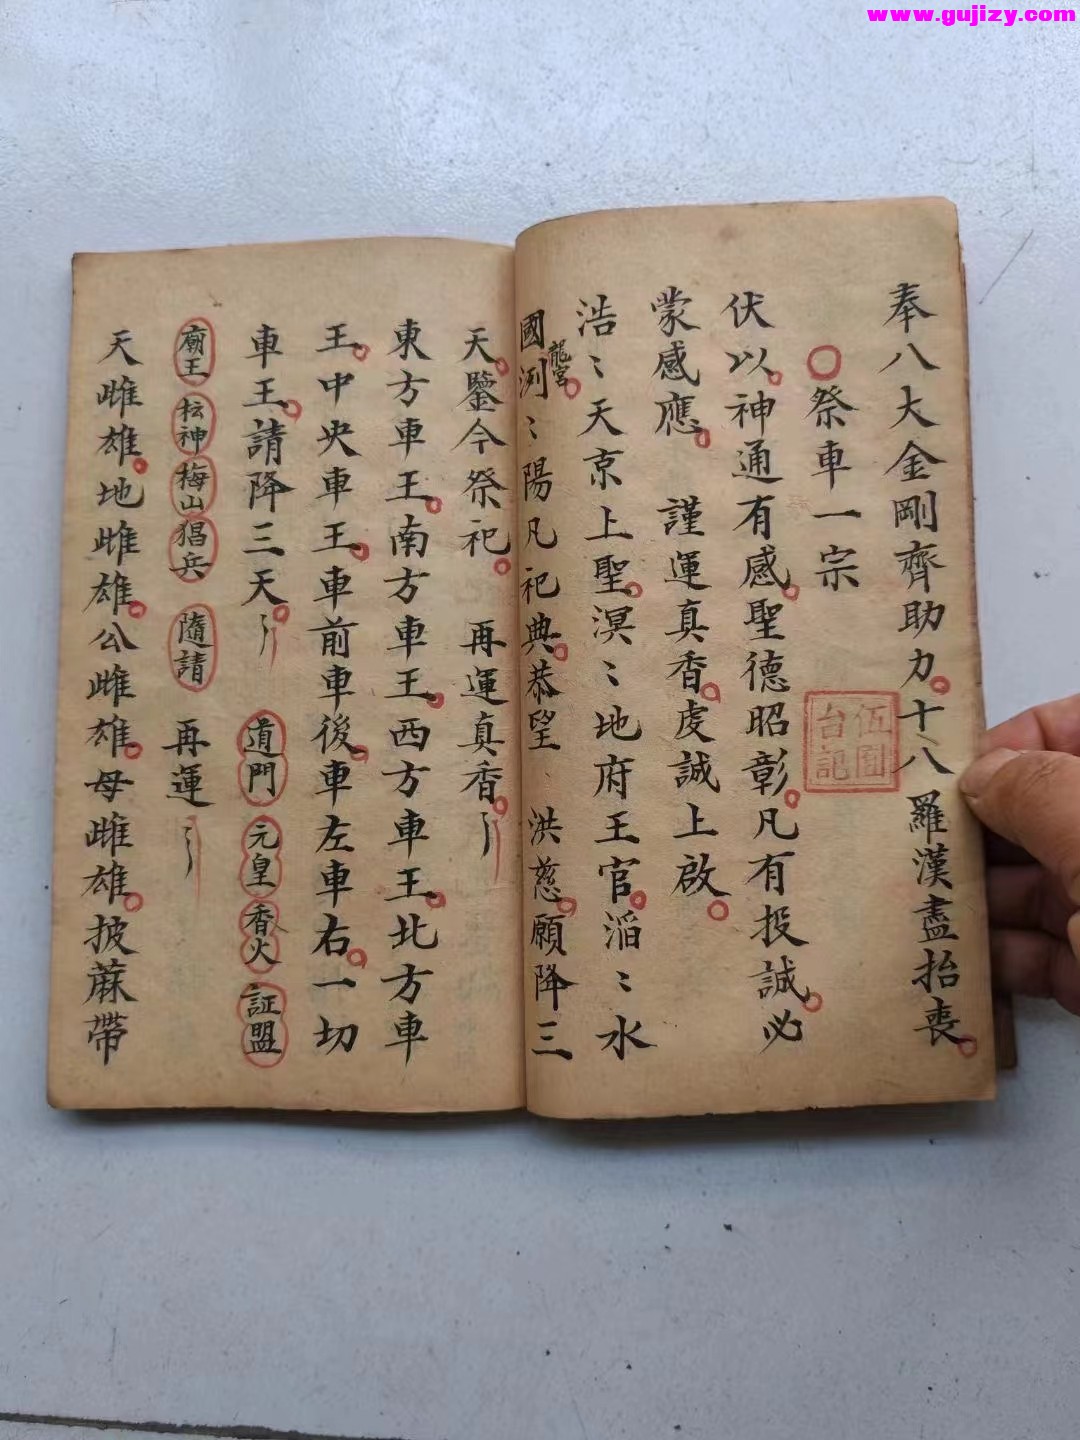 www.gujizy.com
奉八大金剛齊助力十八羅漢盡抬喪
祭車一宗
伏以神通有感聖德昭彰凡有投誠必
蒙感應 謹運真香虔誠上啟
浩〻天京上聖溟〻地府王官滔〻水
國龍宮洌〻陽凡祀典恭望 洪慈願降三
天鑒今祭祀 再運真香
東方車王南方車王西方車王北方車
王中央車王車前車後車左車右一切
車王請降三天 道門 元皇 香火 証盟
廟王 枟神 梅山 猖兵 隨請 再運
天雌雄地雌雄公雌雄母雌雄披蔴帶
伍圓
台記